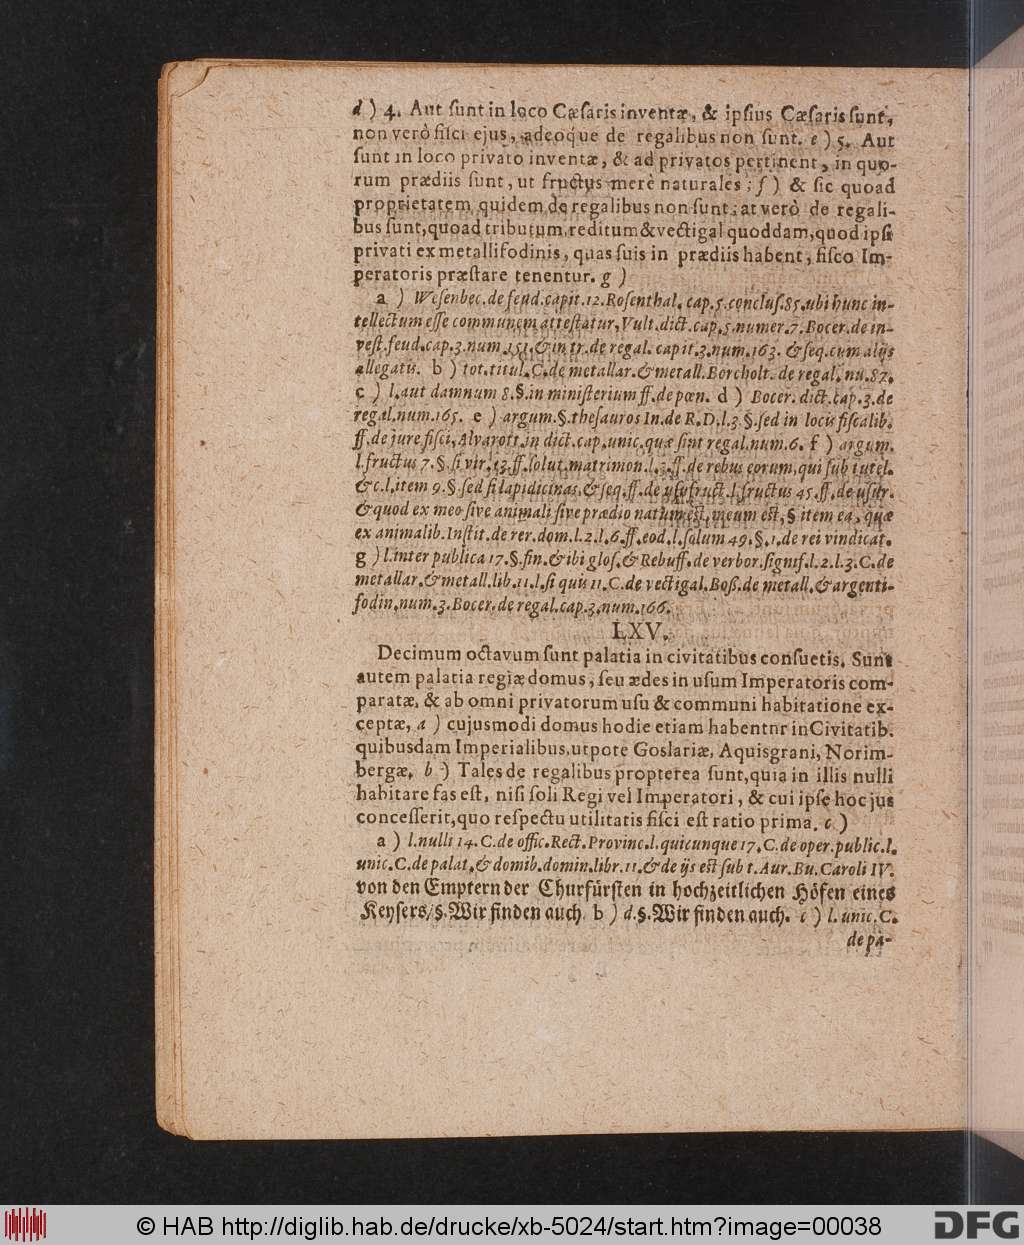 d ) 4. Aut ſunt in loco Cæſaris inventæ, & ipſius Cæſaris ſunt,
non verò fiſci ejus, adeoque de regalibus non ſunt. e ) 5. Aut
ſunt in loco privato inventæ, & ad privatos pertinent, in quo-
rum prædiis ſunt, ut fructus merè naturales; f ) & ſic quoad
proprietatem quidem de regalibus non ſunt; at verò de regali-
bus ſunt, quoad tributum, reditum & vectigal quoddam, quod ipſi
privati ex metallifodinis, quas ſuis in prædiis habent, fiſco Im-
peratoris præſtare tenentur. g )
a ) Weſenbec. de feud. capit. 12. Roſenthal. cap. 5. concluſ. 85. ubi hunc in-
tellectum eſſe communem atteſtatur, Vult. dict. cap. 5. numer. 7. Bocer. de in-
veſt. feud. cap. 3. num. 151. & in tr. de regal. capit. 3. num. 163. & ſeq. cum alijs
allegatis. b ) tot. titul. C. de metallar. & metall. Borcholt. de regal. nu. 87.
c ) l. aut damnum 8. §. in miniſterium ff. de pœn. d ) Bocer. dict. cap. 3. de
regal. num. 165. e ) argum. §. theſauros In. de R. D. l. 3. §. ſed in locis fiſcalib.
ff. de jure fiſci, Alvarott. in dict. cap. unic. quæ ſint regal. num. 6. f ) argum.
l. fructus 7. §. ſi vir. 13. ff. ſolut. matrimon. l. 3. ff. de rebus eorum, qui ſub tutel.
& c. l. item 9. §. ſed ſi lapidicinas. & ſeq. ff. de uſufruct. l. fructus 45. ff. de uſur.
& quod ex meo ſive animali ſive prædio natum eſt, meum eſt, § item ea, quæ
ex animalib. Inſtit. de rer. dom. l. 2. l. 6. ff. eod. l. ſolum 49. §. 1. de rei vindicat.
g ) l. inter publica 17. §. fin. & ibi gloſ. & Rebuff. de verbor. ſignif. l. 2. l. 3. C. de
metallar. & metall. lib. 11. l. ſi quis 11. C. de vectigal. Boß. de metall. & argenti-
fodin. num. 3. Bocer. de regal. cap. 3. num. 166.
LXV.
Decimum octavum ſunt palatia in civitatibus conſuetis. Sunt
autem palatia regiæ domus, ſeu ædes in uſum Imperatoris com-
paratæ, & ab omni privatorum uſu & communi habitatione ex-
ceptæ, a ) cujusmodi domus hodie etiam habentnr in Civitatib.
quibusdam Imperialibus, utpote Goslariæ, Aquisgrani, Norim-
bergæ. b ) Tales de regalibus propterea ſunt, quia in illis nulli
habitare fas eſt, niſi ſoli Regi vel Imperatori, & cui ipſe hoc jus
conceſſerit, quo reſpectu utilitatis fiſci eſt ratio prima. c )
a ) l. nulli 14. C. de offic. Rect. Provinc. l. quicunque 17. C. de oper. public. l.
unic. C. de palat. & domib. domin. libr. 11. & de ijs eſt ſub t. Aur. Bu. Caroli IV.
von den Emptern der Churfürſten in hochzeitlichen Höfen eines
Keyſers/ §. Wir finden auch. b ) d. §. Wir finden auch. c ) l. unic. C.
de pa-
© HAB http://diglib.hab.de/drucke/xb-5024/start.htm?image=00038
DFG